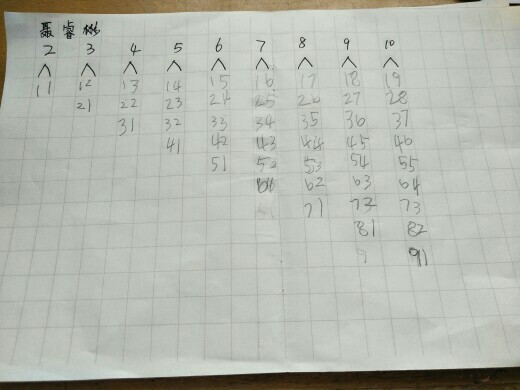 聂睿
2 3 4 5 6 7 8 9 10
11 12 13 14 15 16 17 18 19
21 22 23 24 25 26 27 28
31 32 33 34 35 36 37
41 42 43 44 45 46
51 52 53 54 55
61 62 63 64
71 72 73
81 82
9 91